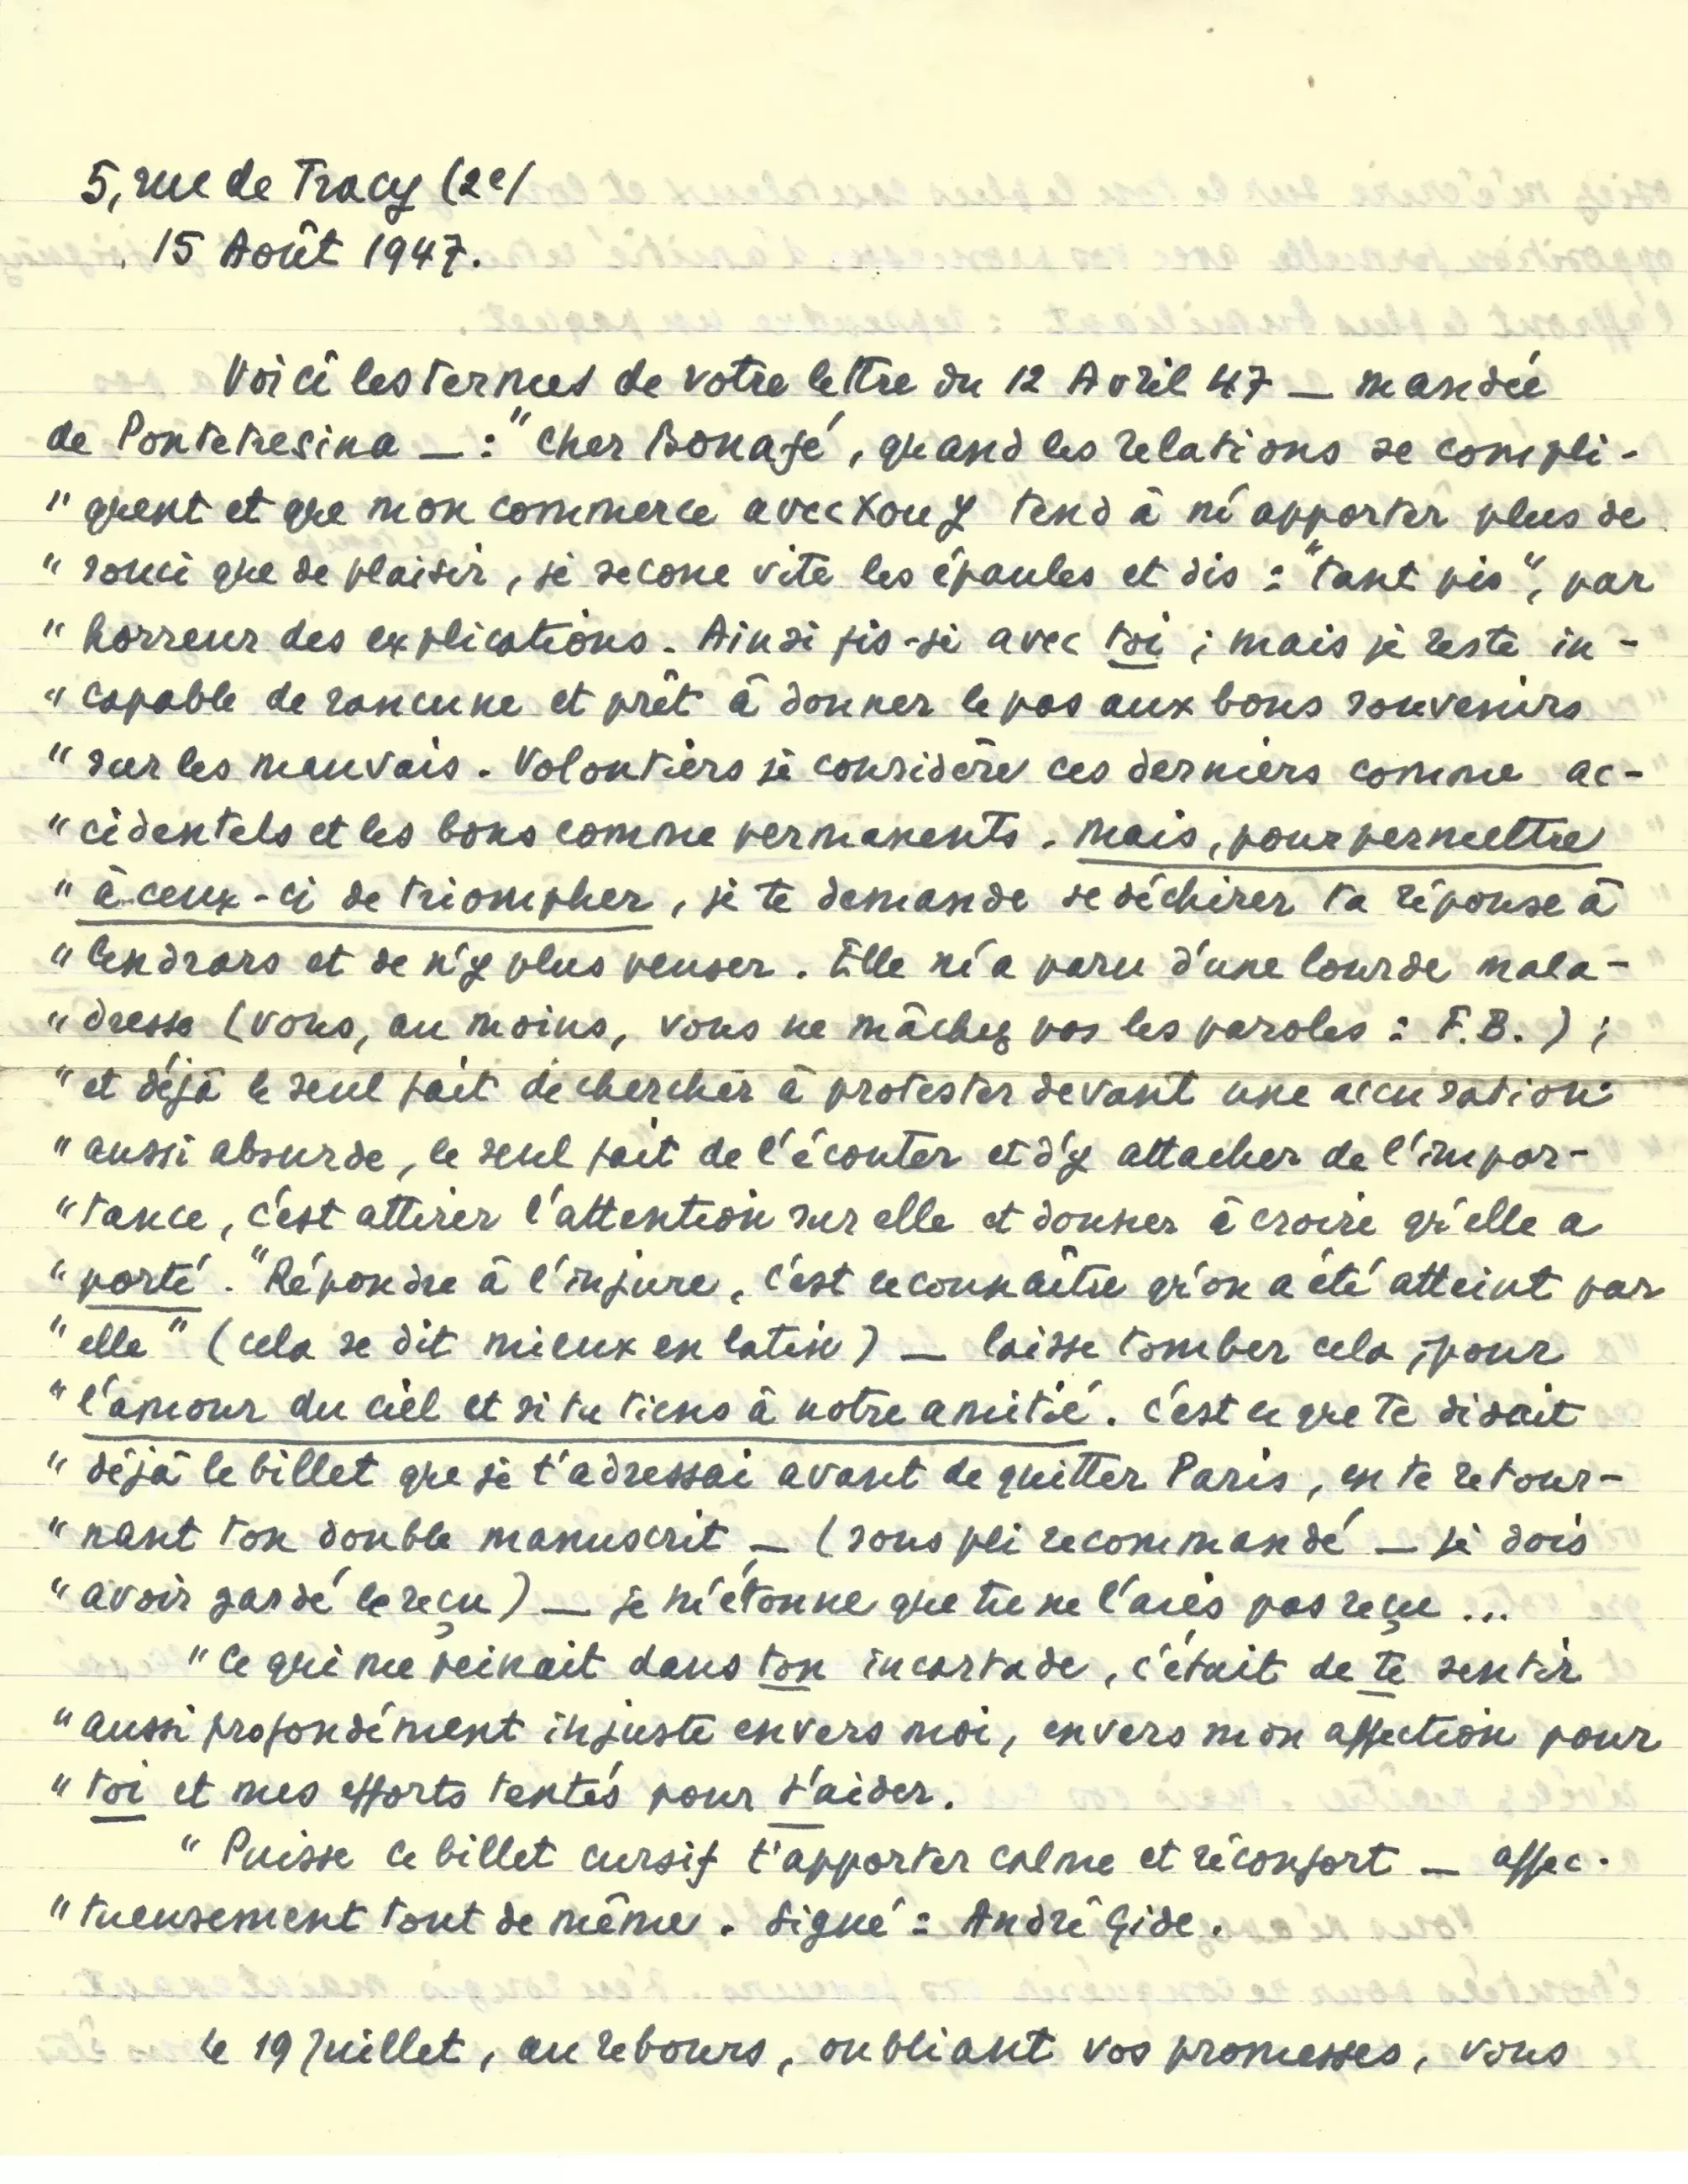 5, rue de Tracy (2e/
15 Août 1947.
Voici les termes de votre lettre du 12 Avril 47 — mandée
de Pontetresina — : "Cher Bonafé, quand les relations se compli-
" quent et que mon commerce avec X ou Y tend à m'apporter plus de
" souci que de plaisir, je secoue vite les épaules et dis : "tant pis", par
" horreur des explications. Ainsi fis-je avec toi ; mais je reste in-
" capable de rancune et prêt à donner le pas aux bons souvenirs
" sur les mauvais. Volontiers je considère ces derniers comme ac-
" cidentels et les bons comme permanents. Mais, pour permettre
" à ceux-ci de triompher, je te demande de déchirer ta réponse à
" Cendrars et de n'y plus penser. Elle m'a paru d'une lourde mala-
" dresse (vous, au moins, vous ne mâchez pas les paroles : F.B.) ;
" et déjà le seul fait de chercher à protester devant une accusation
" aussi absurde, le seul fait de l'écouter et d'y attacher de l'impor-
" tance, c'est attirer l'attention sur elle et donner à croire qu'elle a
" porté. "Répondre à l'injure, c'est reconnaître qu'on a été atteint par
" elle" (cela se dit mieux en latin) — laisse tomber cela, pour
" l'amour du ciel et si tu tiens à notre amitié. C'est ce que te disait
" déjà le billet que je t'adressai avant de quitter Paris, en te retour-
" nant ton double manuscrit — (sous pli recommandé — je dois
" avoir gardé le reçu) — je m'étonne que tu ne l'aies pas reçu ...
" Ce qui me peinait dans ton incartade, c'était de te sentir
" aussi profondément injuste envers moi, envers mon affection pour
" toi et mes efforts tentés pour t'aider.
" Puisse ce billet cursif t'apporter calme et réconfort — affec-
" tueusement tout de même. Signé : André Gide.
Le 19 Juillet, au rebours, oubliant vos promesses, vous